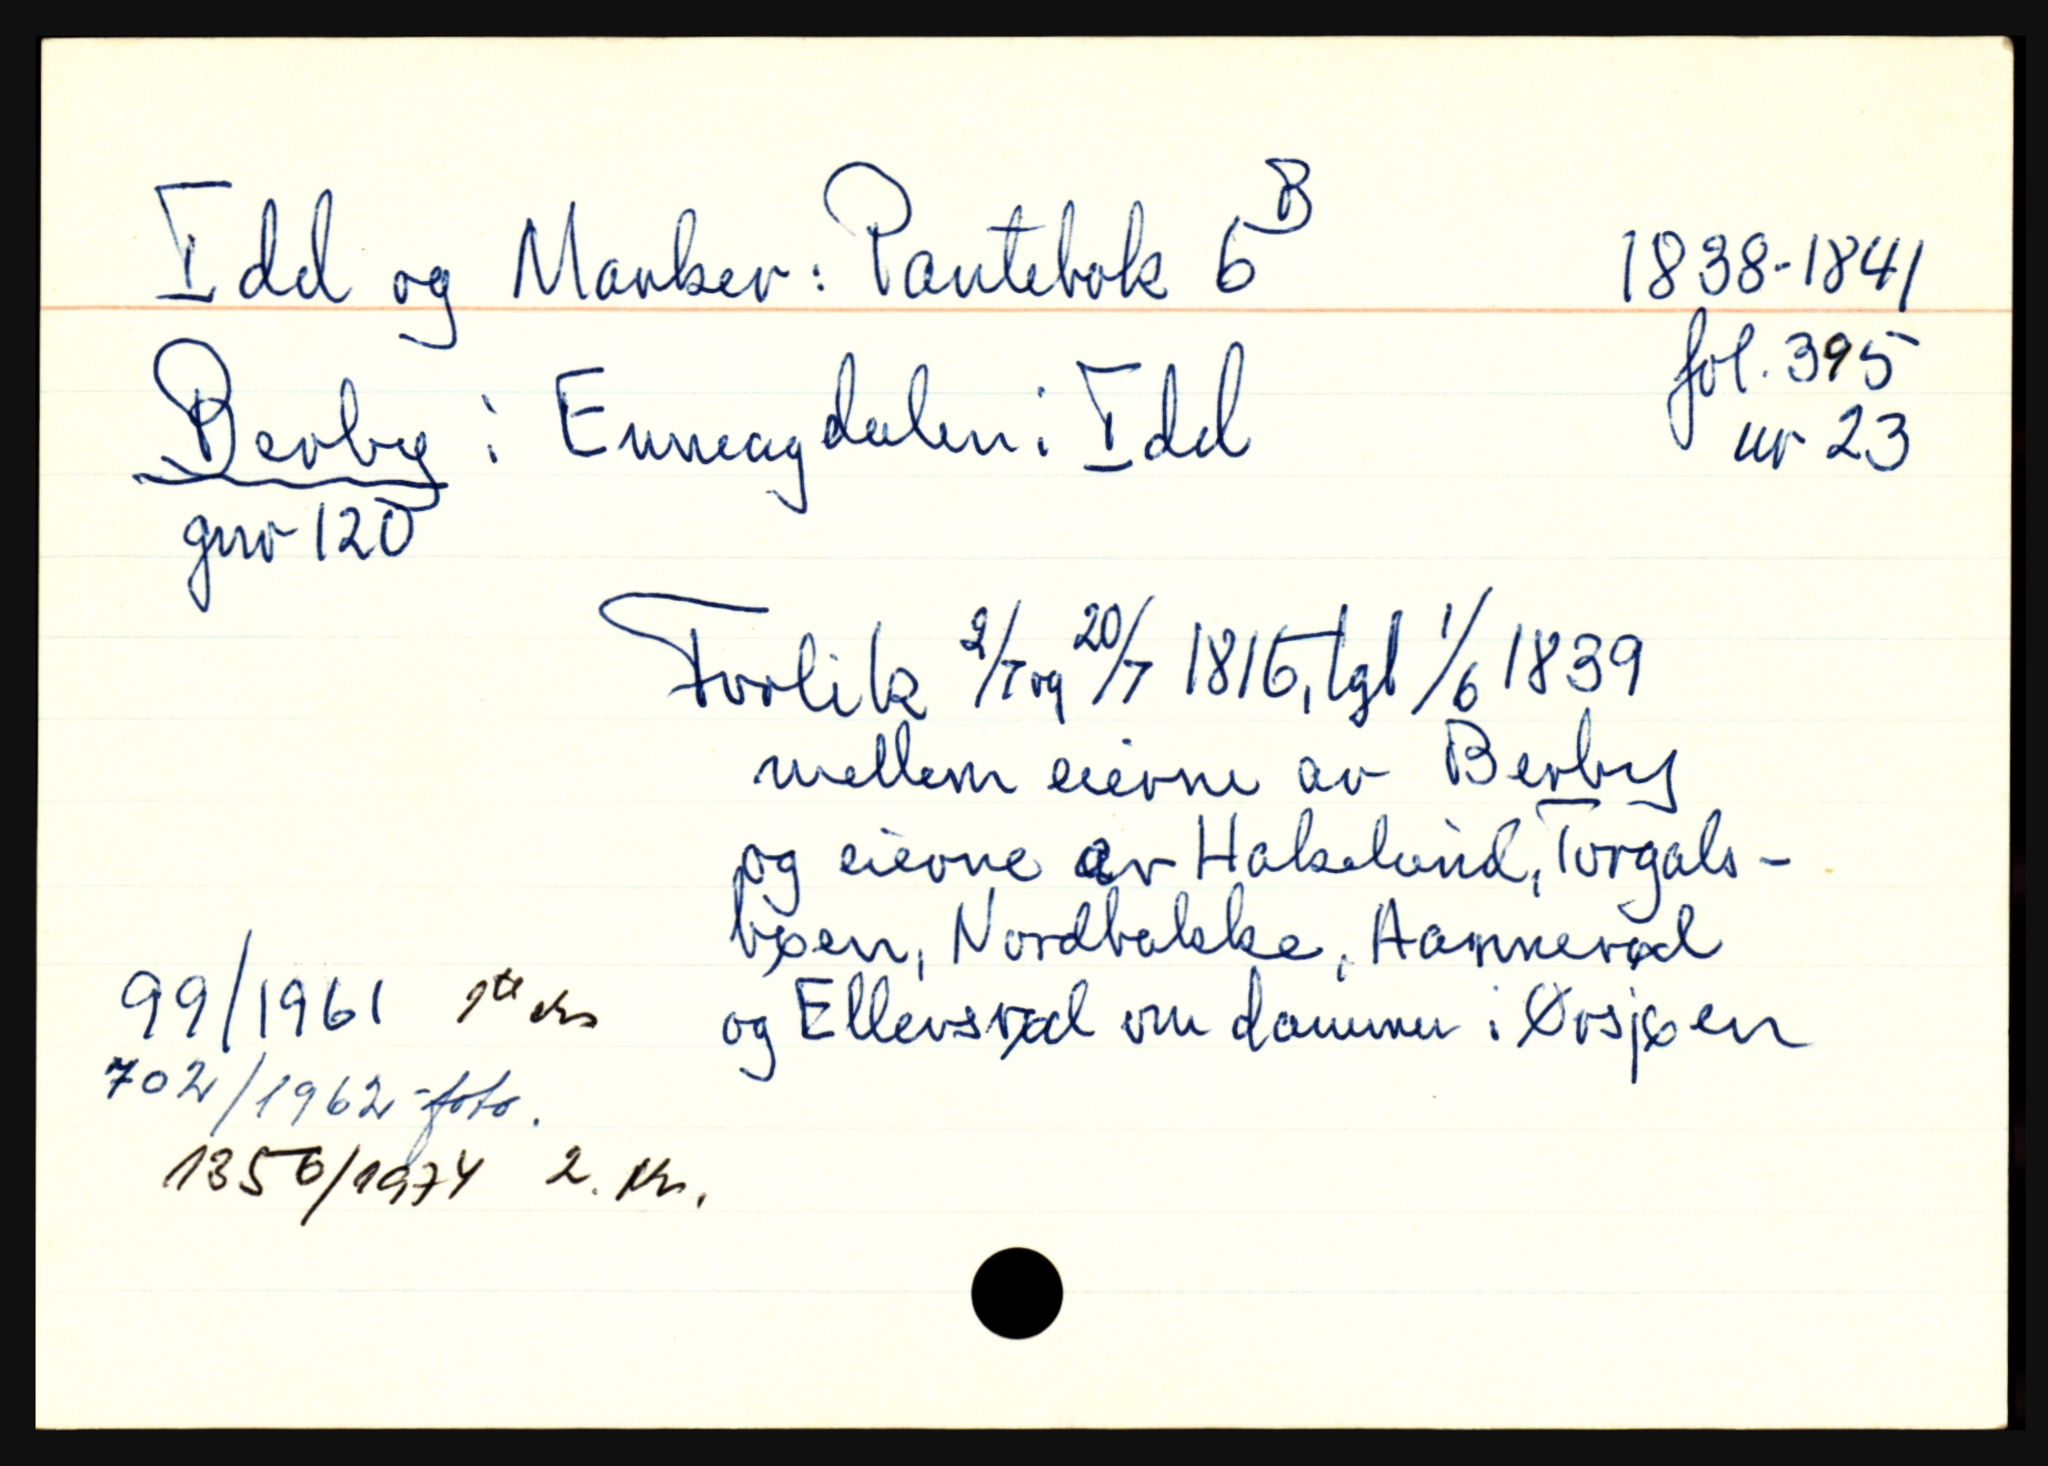 Idd og Marker: Pantebok 6B 1838-1841
fol. 395
Berby i Enneagdalen i Idd nr 23
gnr 120
Forlik 2/7 og 20/7 1816, tgl 1/6 1839
mellem eierne av Berby
og eierne av Hakelund, Torgals-
bøen, Nordbakke, Aannerød
og Ellersrød om dammer i Ørsjøen
99/1961 1ste
702/1962 - foto.
1356/1974 2.